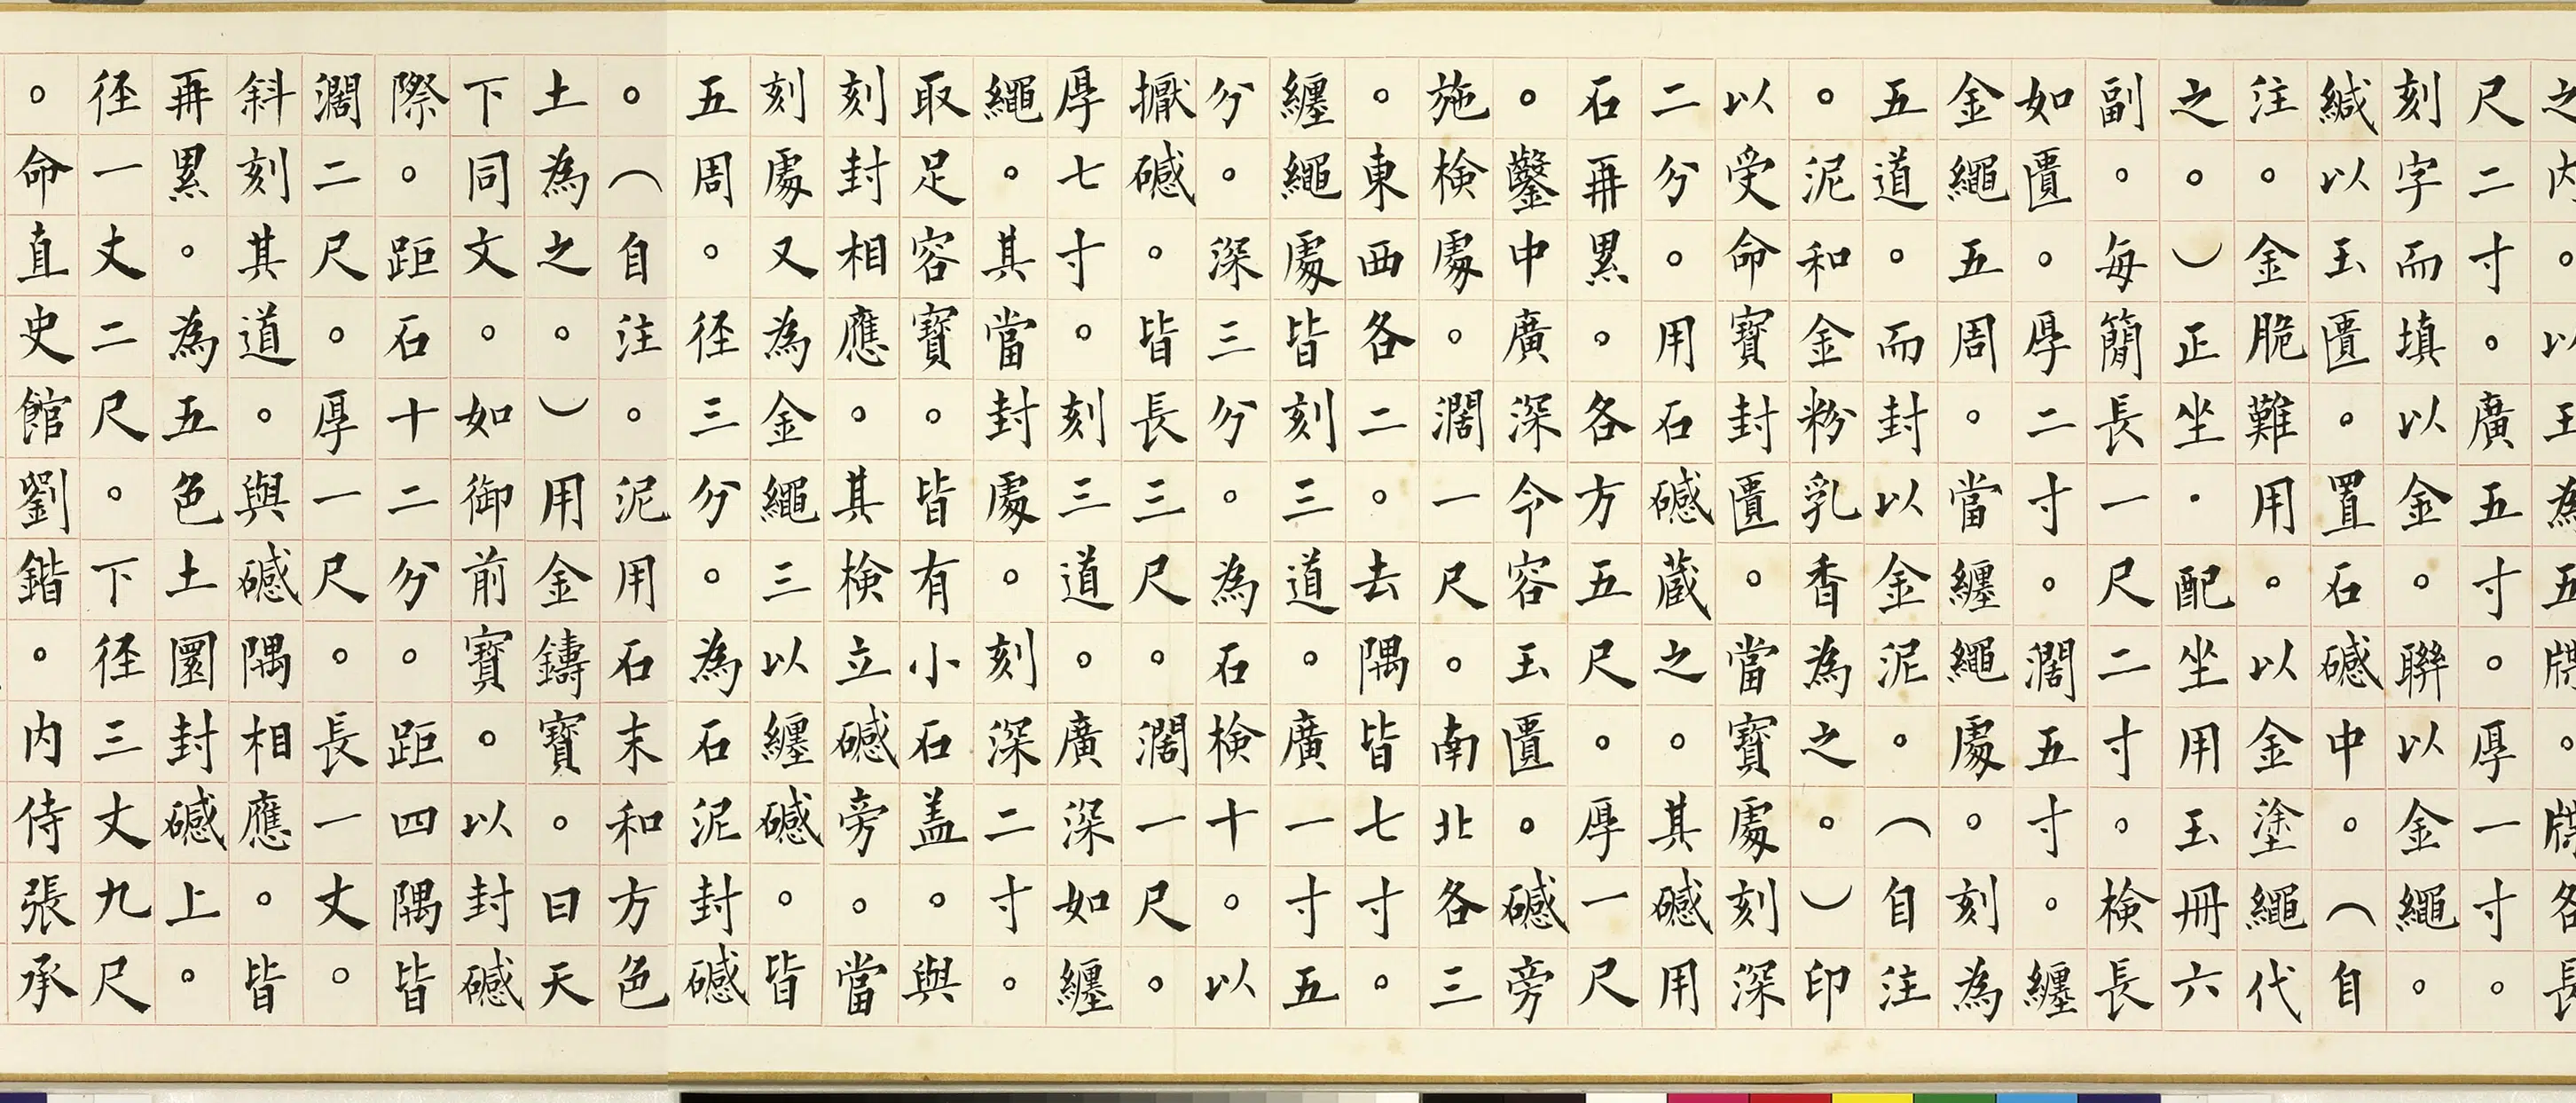 之内。以玉為五牒。牒各長
尺二寸。廣五寸。厚一寸。
刻字而填以金。聯以金繩。
緘以玉匱。置石䃭中。（自
注。金脆難用。以金塗繩代
之。）正坐・配坐用玉冊六
副。每簡長一尺二寸。検長
如匱。厚二寸。濶五寸。纏
金繩五周。當纏繩處。刻為
五道。而封以金泥。（自注
。泥和金粉乳香為之。）印
以受命寶封匱。當寶處刻深
二分。用石䃭蔵之。其䃭用
石再累。各方五尺。厚一尺
。鑿中廣深今容玉匱。䃭旁
施検處。濶一尺。南北各三
。東西各二。去隅皆七寸。
纏繩處皆刻三道。廣一寸五
分。深三分。為石検十。以
擫䃭。皆長三尺。濶一尺。
厚七寸。刻三道。廣深如纏
繩。其當封處。刻深二寸。
取足容寶。皆有小石盖。與
刻封相應。其検立䃭旁。當
刻處又為金繩三以纏䃭。皆
五周。径三分。為石泥封䃭
。（自注。泥用石末和方色
土為之。）用金鑄寶。曰天
下同文。如御前寶。以封䃭
際。距石十二分。距四隅皆
濶二尺。厚一尺。長一丈。
斜刻其道。與䃭隅相應。皆
再累。為五色土圜封䃭上。
径一丈二尺。下径三丈九尺
。命直史館劉鍇。内侍張承